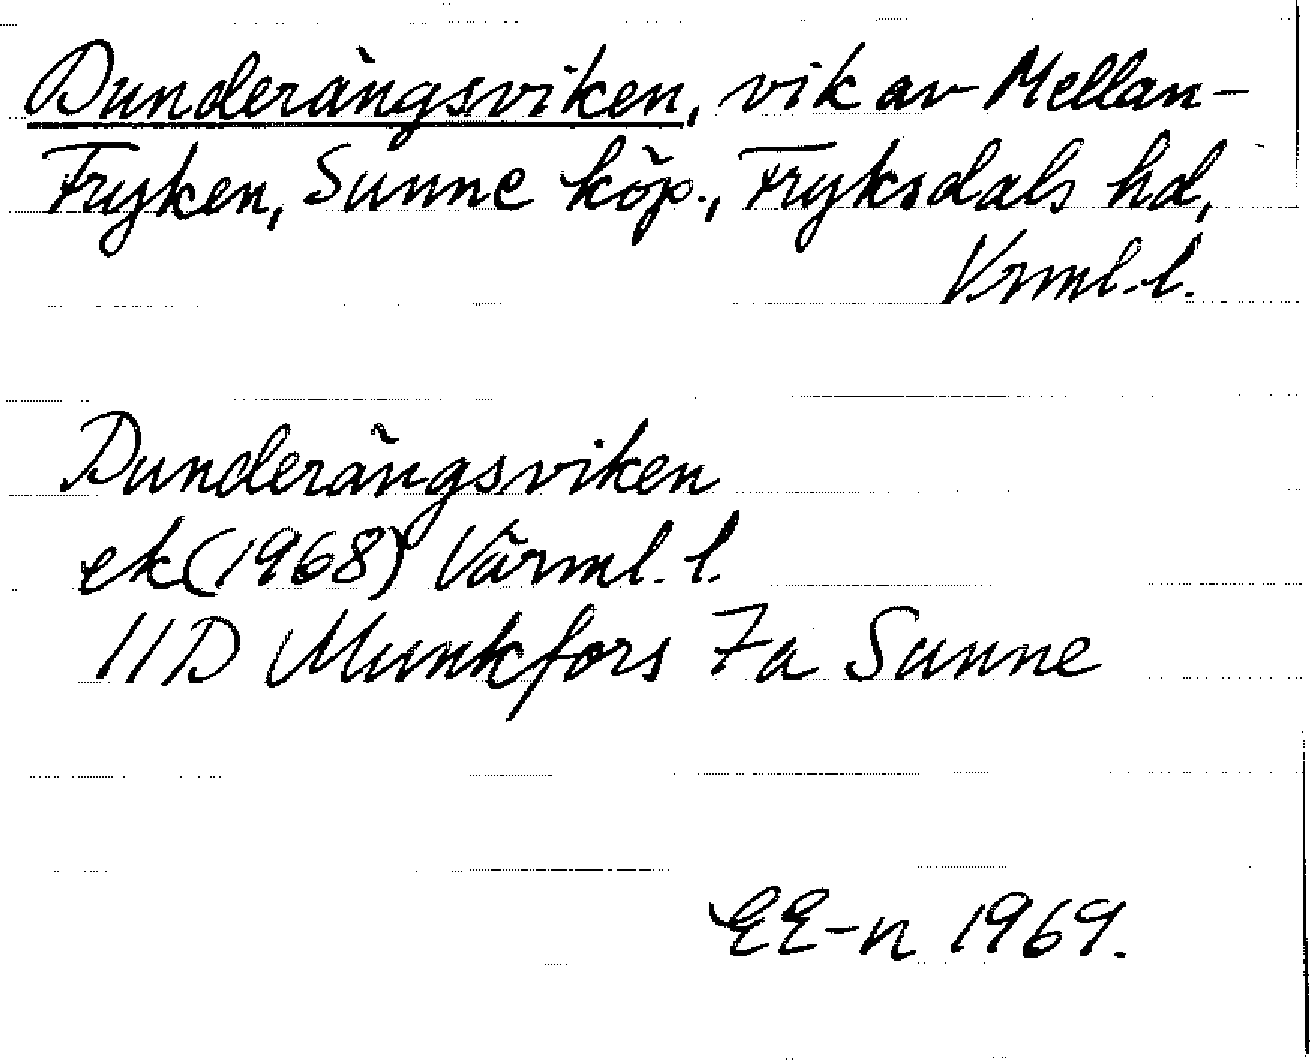 Dunderängsviken, vik av Mellan-
Fryken, Sunne köp., Fryksdals hd,
Vrml. l.
Dunderängsviken
ek (1968) Värml. l.
11D Munkfors 7a Sunne
EE-n 1969.